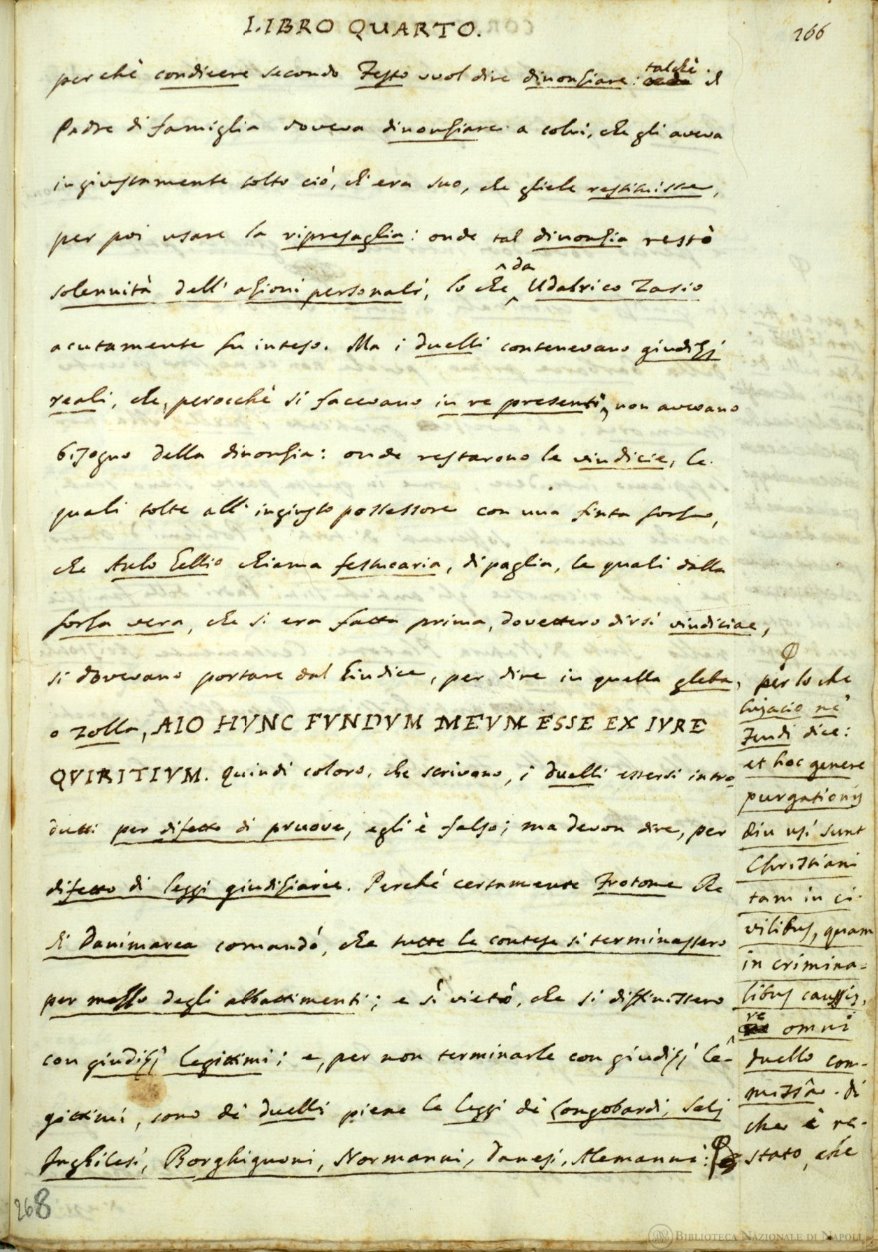 LIBRO QUARTO.
266
perchè condicere secondo Festo vuol dire dinonziare: talchè il
Padre di famiglia doveva dinonziare a colui, che gli aveva
ingiustamente tolto ciò, ch'era suo, che gliele restituisse,
per poi usare la ripresaglia: onde tal dinonzia restò
solennità dell'azioni personali, lo che da Udalrico Zasio
acutamente fu inteso. Ma i duelli contenevano giudizj
reali, che, perocchè si facevano in re presenti, non avevano
bisogno della dinonzia: onde restarono le vindicie, le
quali tolte all'ingiusto possessore con una finta forza,
che Aulo Gellio chiama festucaria, di paglia, le quali dalla
forza vera, che si era fatta prima, dovettero dirsi vindiciae,
si dovevano portare dal Giudice, per dire in quella gleba,
o zolla, AIO HVNC FVNDVM MEVM ESSE EX IVRE
QVIRITIVM. Quindi coloro, che scrivono, i duelli essersi intro-
dutti per difetto di pruove, egli è falso; ma devon dire, per
difetto di leggi giudiziarie. Perchè certamente Frotone Re
di Danimarca comandò, che tutte le contese si terminassero
per mezzo degli abbattimenti; e si vietò, che si diffinissero
con giudizj legittimi; e, per non terminarle con giudizj le-
gittimi, sono di duelli piene le leggi de' Longobardi, Salj
Inghilesi, Borghignoni, Normanni, Danesi, Alemanni:
per lo che
Cujacio ne'
Feudi dice:
et hoc genere
purgationis
diu usi sunt
Christiani
tam in ci-
vilibus, quam
in crimina-
libus caussis,
re omni
duello com-
missa. di
che è re-
stato, che
268
BIBLIOTECA NAZIONALE DI NAPOLI